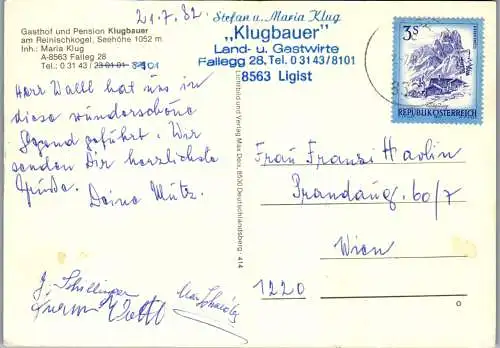 21.7.82
Gasthof und Pension Klugbauer
am Reinischkogel, Seehöhe 1052 m.
Inh.: Maria Klug
A-8563 Falleg 28
Tel.: 0 31 43 / 23 01 01 8101
Stefan u. Maria Klug
„Klugbauer”
Land- u. Gastwirte
Fallegg 28, Tel. 0 31 43/8101
8563 Ligist
3 S
REPUBLIK ÖSTERREICH
Herr Walll hat uns in
diese wunderschöne
Gegend geführt. Wir
senden Dir herzlichste
Grüße. Deine Mutz.
Lichtbild und Verlag Max Deix, 8530 Deutschlandsberg / 414
Frau Franzi Havlin
Prandaug. 60/7
Wien
1220